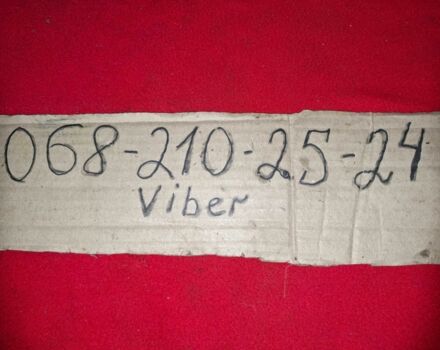 068-210-25-24
Viber